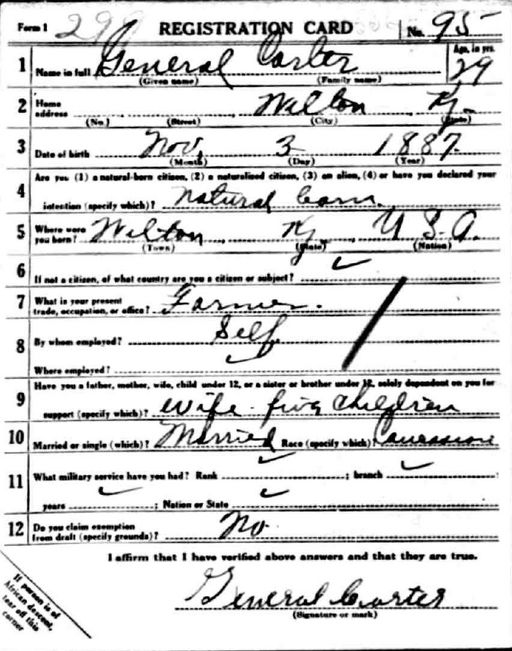 Form 1 299 REGISTRATION CARD No. 95
1 Name in full General Carter Age, in yrs. 29
(Given name) (Family name)
2 Home address Wilton Ky.
(No.) (Street) (City) (State)
3 Date of birth Nov. 3 1887
(Month) (Day) (Year)
4 Are you (1) a natural-born citizen, (2) a naturalized citizen, (3) an alien, (4) or have you declared your
intention (specify which)? natural born.
5 Where were you born? Wilton Ky U.S.A.
(Town) (State) (Nation)
6 If not a citizen, of what country are you a citizen or subject? ✓
7 What is your present trade, occupation, or office? Farmer.
8 By whom employed? Self
Where employed? ✓
9 Have you a father, mother, wife, child under 12, or a sister or brother under 12, solely dependent on you for
support (specify which)? Wife - five children
10 Married or single (which)? Married Race (specify which)? Caucasian
11 What military service have you had? Rank ✓ ; branch ✓
years ✓ ; Nation or State ✓
12 Do you claim exemption from draft (specify grounds)? No
I affirm that I have verified above answers and that they are true.
General Carter
(Signature or mark)
If person is of
African descent,
tear off this
corner